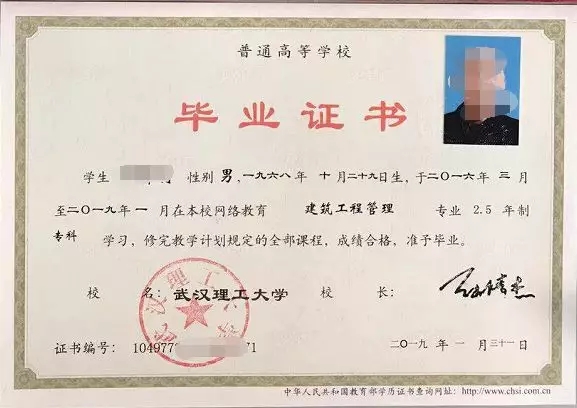 普通高等学校
毕业证书
学生 性别 男，一九六八年 十月二十九日生，于二〇一六年 三月
至二〇一九年 一月在本校网络教育 建筑工程管理 专业 2.5 年制
专科 学习，修完教学计划规定的全部课程，成绩合格，准予毕业。
校 名：武汉理工大学 校 长：
武汉理工大学
证书编号：104977 71 二〇一九年 一月三十一日
中华人民共和国教育部学历证书查询网址：http://www.chsi.com.cn